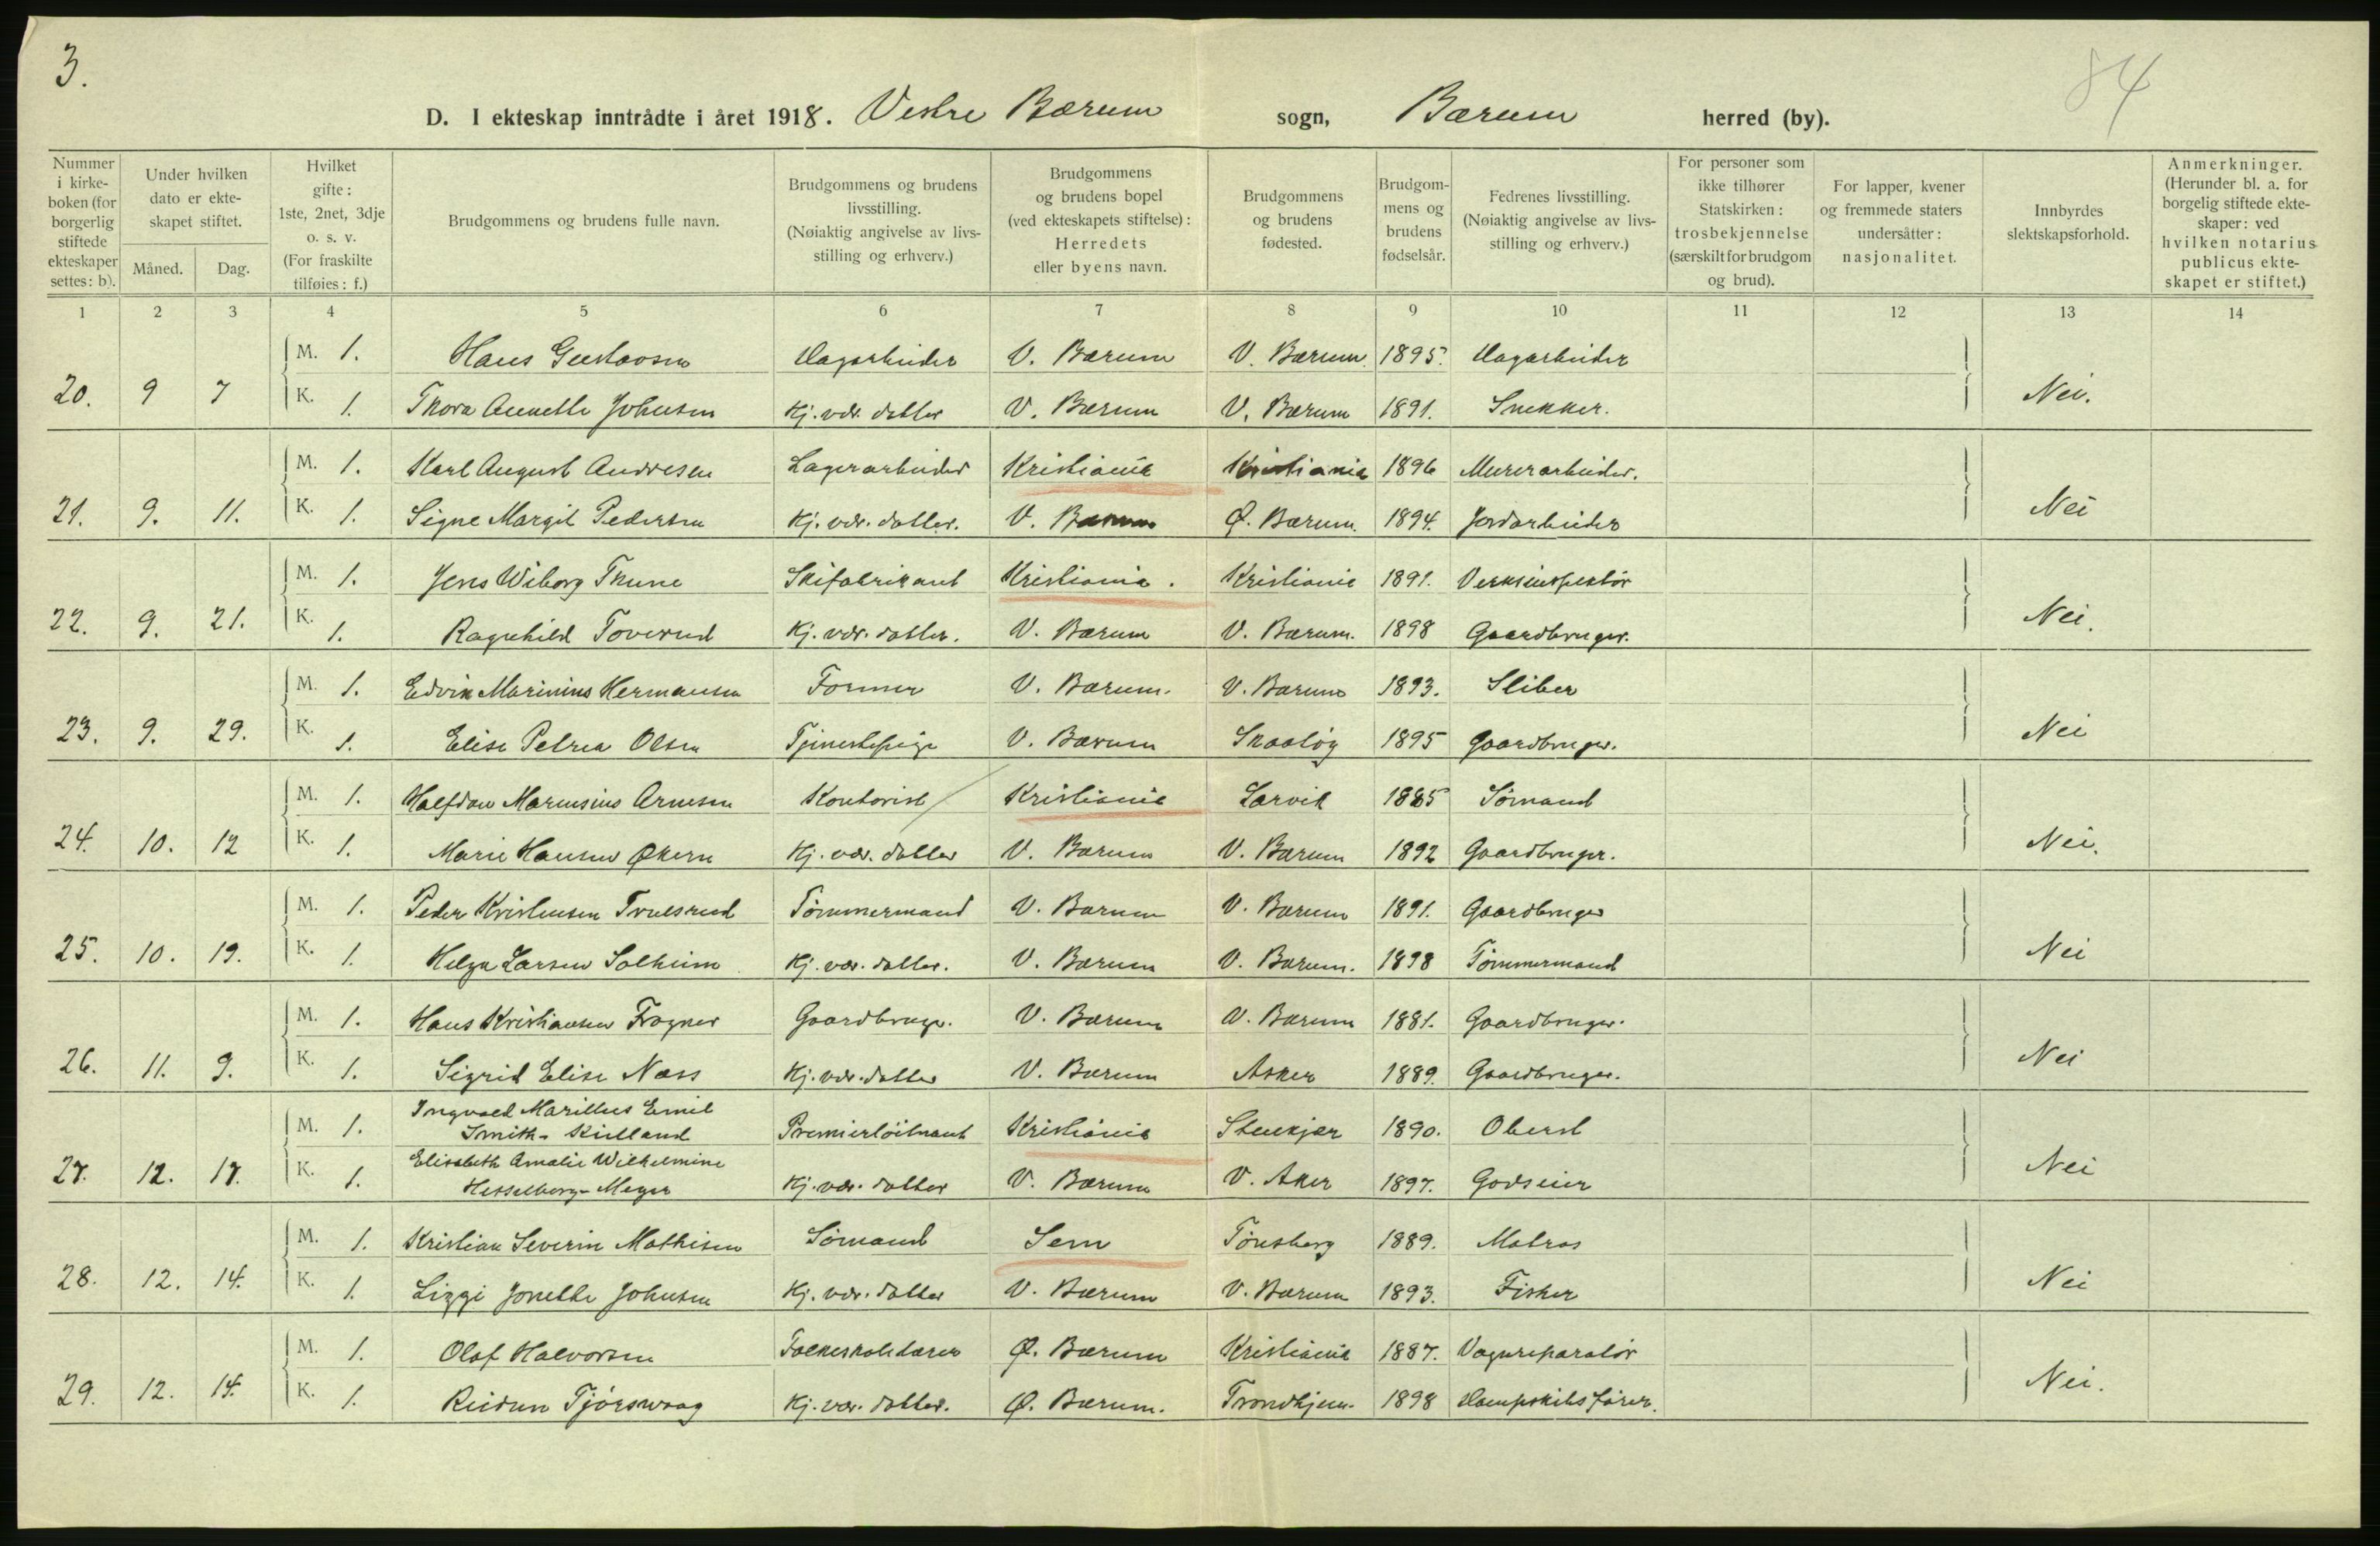 3.
84
D. I ekteskap inntrådte i året 1918. Vestre Bærum sogn, Bærum herred (by).
Nummer i kirkeboken (for borgerlig stiftede ekteskaper settes: b).
Under hvilken dato er ekteskapet stiftet.
Måned. Dag.
Hvilket gifte: 1ste, 2net, 3dje o. s. v. (For fraskilte tilføies: f.)
Brudgommens og brudens fulle navn.
Brudgommens og brudens livsstilling. (Nøiaktig angivelse av livsstilling og erhverv.)
Brudgommens og brudens bopel (ved ekteskapets stiftelse): Herredets eller byens navn.
Brudgommens og brudens fødested.
Brudgommens og brudens fødselsår.
Fedrenes livsstilling. (Nøiaktig angivelse av livsstilling og erhverv.)
For personer som ikke tilhører Statskirken: trosbekjennelse (særskilt for brudgom og brud).
For lapper, kvener og fremmede staters undersåtter: nasjonalitet.
Innbyrdes slektskapsforhold.
Anmerkninger. (Herunder bl. a. for borgelig stiftede ekteskaper: ved hvilken notarius publicus ekteskapet er stiftet.)
1 2 3 4 5 6 7 8 9 10 11 12 13 14
M. 1. Hans Gustavsen Dagarbeider V. Bærum V. Bærum 1895. Dagarbeider
20. 9 7 K. 1. Thora Annette Johnsen Kj. vær. datter V. Bærum V. Bærum 1891. Snekker. Nei.
M. 1. Karl August Andresen Lagerarbeider Kristiania Kristiania 1896 Murerarbeider.
21. 9. 11. K. 1. Signe Margit Pedersen Kj. vær. datter. V. Bærum Ø. Bærum. 1894. Jordarbeider Nei
M. 1. Jens Wiborg Thune Skifabrikant Kristiania. Kristiania 1891. Verksinspektør
22. 9. 21. K. 1. Ragnhild Toverud Kj. vær. datter. V. Bærum V. Bærum. 1898 Gaardbruger. Nei.
M. 1. Edvin Marinius Hermansen Former V. Bærum. V. Bærum 1893. Sliber
23. 9. 29. K. 1. Elise Petrea Olsen Tjenestepige V. Bærum Skaatøy 1895 Gaardbruger. Nei
M. 1. Halfdan Marensius Arnesen Kontorist Kristiania Larvik 1885 Sømand
24. 10. 12 K. 1. Marie Hansen Økern Kj. vær. datter V. Bærum V. Bærum 1892 Gaardbruger. Nei.
M. 1. Peder Kristensen Truelsrud Tømmermand V. Bærum V. Bærum 1891. Gaardbruger
25. 10. 19. K. 1. Helga Larsen Solheim Kj. vær. datter. V. Bærum V. Bærum. 1898 Tømmermand Nei
M. 1. Hans Kristiansen Frogner Gaardbruger. V. Bærum V. Bærum 1881. Gaardbruger.
26. 11. 9. K. 1. Sigrid Elise Næss Kj. vær. datter V. Bærum Asker 1889. Gaardbruger. Nei
Ingvald Marillus Emil
M. 1. Smith-Kielland Premierløitnant Kristiania Stenkjær 1890. Oberst
Elisabeth Amalie Wilhelmine
27. 12. 17. K. 1. Hesselberg-Meyer Kj. vær. datter V. Bærum V. Aker 1897. Godseier Nei
M. 1. Kristian Severin Mathisen Sømand Sem Tønsberg 1889. Matros
28. 12. 14. K. 1. Lizzi Jonette Johnsen Kj. vær. datter V. Bærum V. Bærum 1893. Fisker Nei
M. 1. Olaf Halvorsen Folkeskolelærer Ø. Bærum Kristiania 1887. Vognreparatør
29. 12. 14. K. 1. Reidun Tjørswaag Kj. vær. datter. Ø. Bærum. Trondhjem. 1898 Dampskibsfører. Nei.